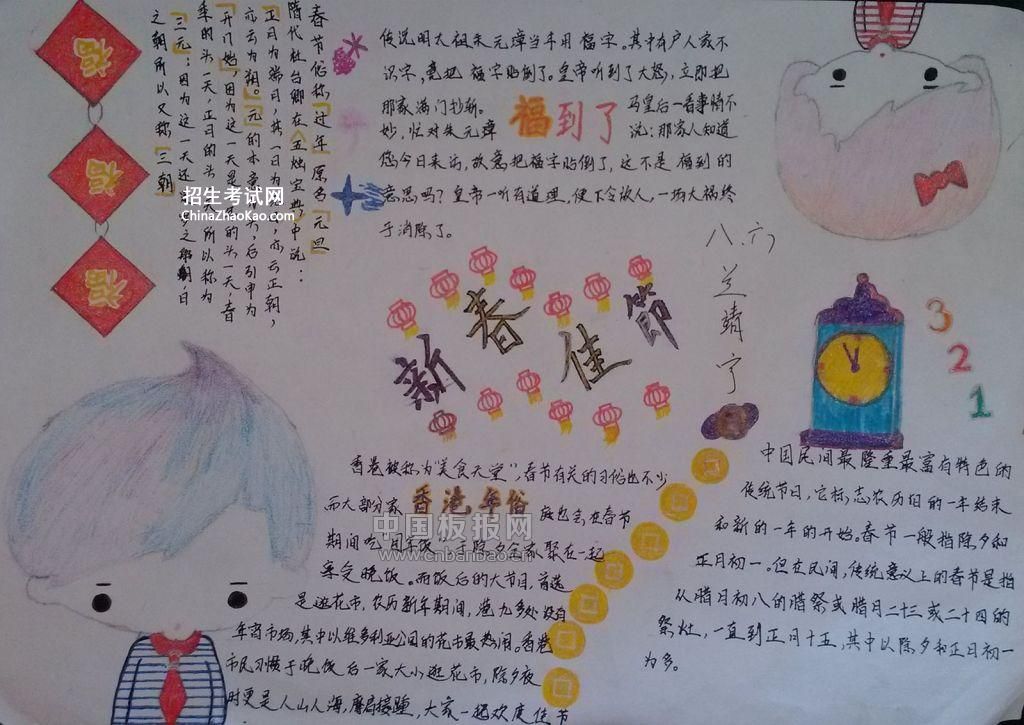 福
福
福
春节俗称「过年」原名「元旦」
隋代杜台卿在《五烛宝典》中说：
正月为端月，其一日为元日，亦云正朝，
亦云为朔。「元」的本意为头，后引申为
「开始」，因为这一天是一年的头一天，春
季的头一天，正月的头一天，所以称为
「三元」；因为这一天还是岁之朝，月
之朝，所以又称「三朝」
招生考试网
ChinaZhaoKao.com
传说明太祖朱元璋当年用福字。其中有户人家不
识字，竟把福字贴倒了。皇帝听到了大怒，立即把
那家满门抄斩。
马皇后一看事情不
妙，忙对朱元璋
福到了
说：那家人知道
您今日来访，故意把福字贴倒了，这不是福到的
意思吗？皇帝一听有道理，便下令放人，一场大祸终
于消除了。
八.六
兰靖宁
新春佳節
3
2
1
香港被称为“美食天堂”，春节有关的习俗也不少
而大部分家
香港年俗
庭也会在春节
期间吃团年饭，于除夕全家聚在一起
享受晚饭。而饭后的大节目，首选
是逛花市，农历新年期间，港九多处设有
年宵市场，其中以维多利亚公园的花市最热闹。香港
市民习惯于晚饭后一家大小逛花市，除夕夜
时更是人山人海，摩肩接踵，大家一起欢度佳节
中国板报网
www.cnbanbao.cn
中国民间最隆重最富有特色的
传统节日，它标志农历旧的一年结束
和新的一年的开始。春节一般指除夕和
正月初一。但在民间，传统意义上的春节是指
从腊月初八的腊祭或腊月二十三或二十四的
祭灶，一直到正月十五，其中以除夕和正月初一
为多。